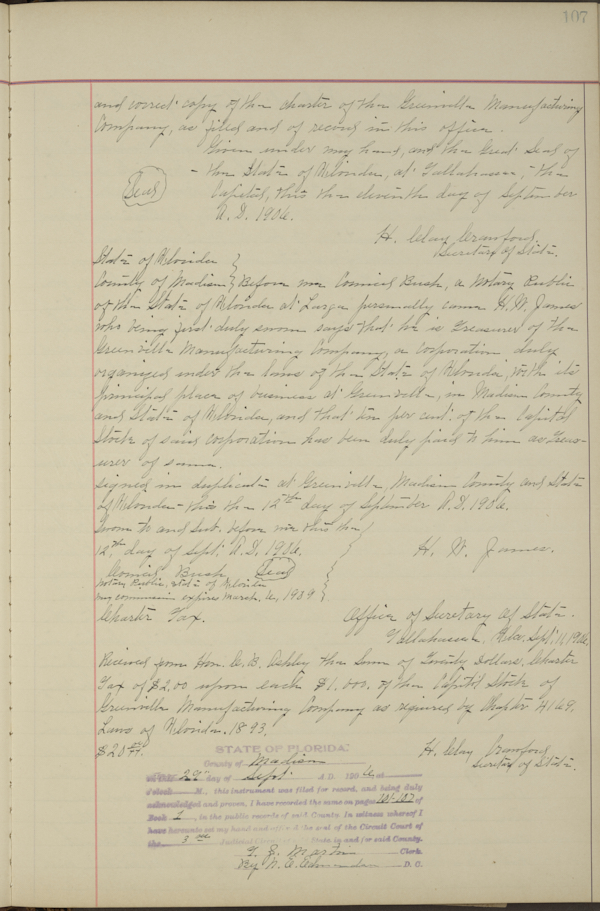 107
and correct copy of the charter of the Greenville Manufacturing
Company, as filed and of record in this office.
Given under my hand, and the Great Seal of
the State of Florida, at Tallahassee, the
Capital, this the eleventh day of September
A.D. 1906.
Seal
H. Clay Crawford,
Secretary of State.
State of Florida
County of Madison } Before me Comical Bush, a Notary Public
of the State of Florida at Large personally came H. W. James
who being first duly sworn says that he is Treasurer of the
Greenville Manufacturing Company, a corporation duly
organized under the laws of the State of Florida, with its
principal place of business at Greenville, in Madison County
and State of Florida, and that ten per cent. of the Capital
Stock of said corporation has been duly paid to him as Treas-
urer of same.
Signed in duplicate at Greenville, Madison County and State
of Florida this the 12th day of September A.D. 1906.
Sworn to and Sub. before me this the
12th day of Sept. A.D. 1906.
H. W. James.
Bush Seal
Notary Public, State of Florida
my commission expires March, 1909
Charter Tax.
Office of Secretary of State.
Tallahassee, Fla., Sept. 11, 1906.
Received from Hon. C. B. Ashley the Sum of Twenty Dollars, Charter
Tax of $2.00 upon each $1.000. of the Capital Stock of
Greenville Manufacturing Company as required by Chapter 4169.
Laws of Florida. 1893.
$20.00
H. Clay Crawford
Secretary of State.
STATE OF FLORIDA
County of Madison
day of Sept. A.D. 1906 at
o'clock M., this instrument was filed for record, and being duly
acknowledged and proven, I have recorded the same on pages 101-107 of
Book 1, in the public records of said County. In witness whereof I
have hereunto set my hand and affixed the seal of the Circuit Court of
the 3rd Judicial Circuit State in and for said County.
Clerk.
By D. C.